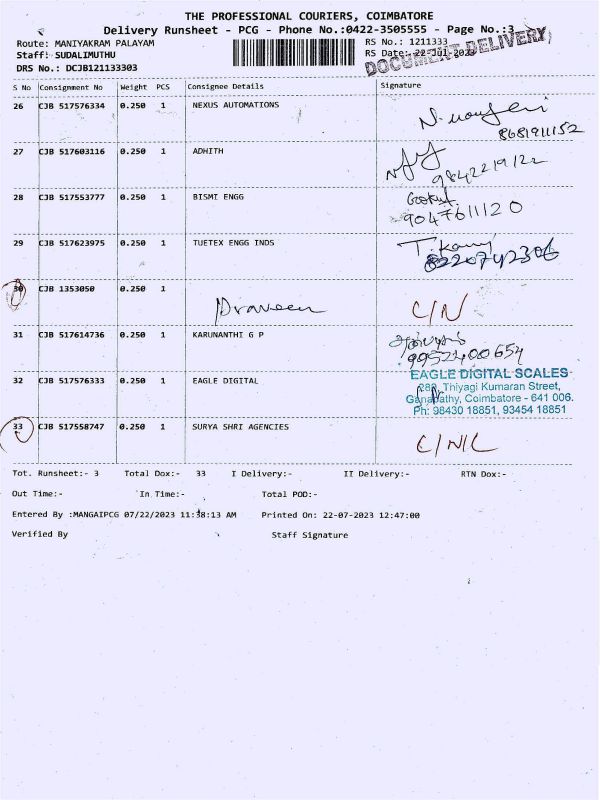 THE PROFESSIONAL COURIERS, COIMBATORE
Delivery Runsheet - PCG - Phone No.:0422-3505555 - Page No.:3
Route: MANIYAKRAM PALAYAM
RS No.: 1211333
Staff:- SUDALIMUTHU
RS Date:- 22-Jul-2023
DOCUMENT DELIVERY
DRS No.: DCJB121133303
S No Consignment No Weight PCS Consignee Details Signature
26 CJB 517576334 0.250 1 NEXUS AUTOMATIONS
8681911152
27 CJB 517603116 0.250 1 ADHITH
9842219122
28 CJB 517553777 0.250 1 BISMI ENGG
9047611120
29 CJB 517623975 0.250 1 TUETEX ENGG INDS
8220742306
30 CJB 1353050 0.250 1 Praveen C/N
31 CJB 517614736 0.250 1 KARUNANTHI G P
9952400654
32 CJB 517576333 0.250 1 EAGLE DIGITAL
EAGLE DIGITAL SCALES
288, Thiyagi Kumaran Street,
Ganapathy, Coimbatore - 641 006.
Ph: 98430 18851, 93454 18851
33 CJB 517558747 0.250 1 SURYA SHRI AGENCIES C/N/C
Tot. Runsheet:- 3 Total Dox:- 33 I Delivery:- II Delivery:- RTN Dox:-
Out Time:- In Time:- Total POD:-
Entered By :MANGAIPCG 07/22/2023 11:38:13 AM Printed On: 22-07-2023 12:47:00
Verified By Staff Signature